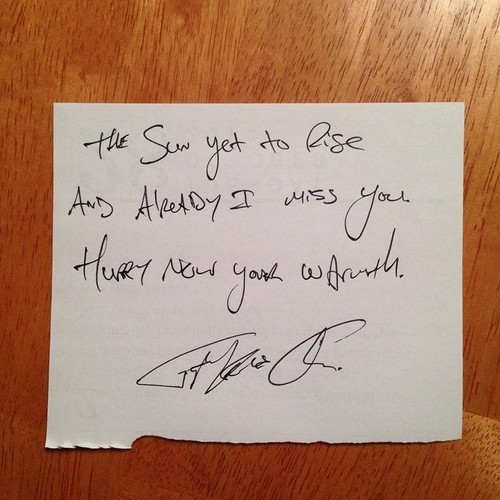 the Sun yet to Rise
AND AlReADy I miss you
HuRRy Now your warmth.